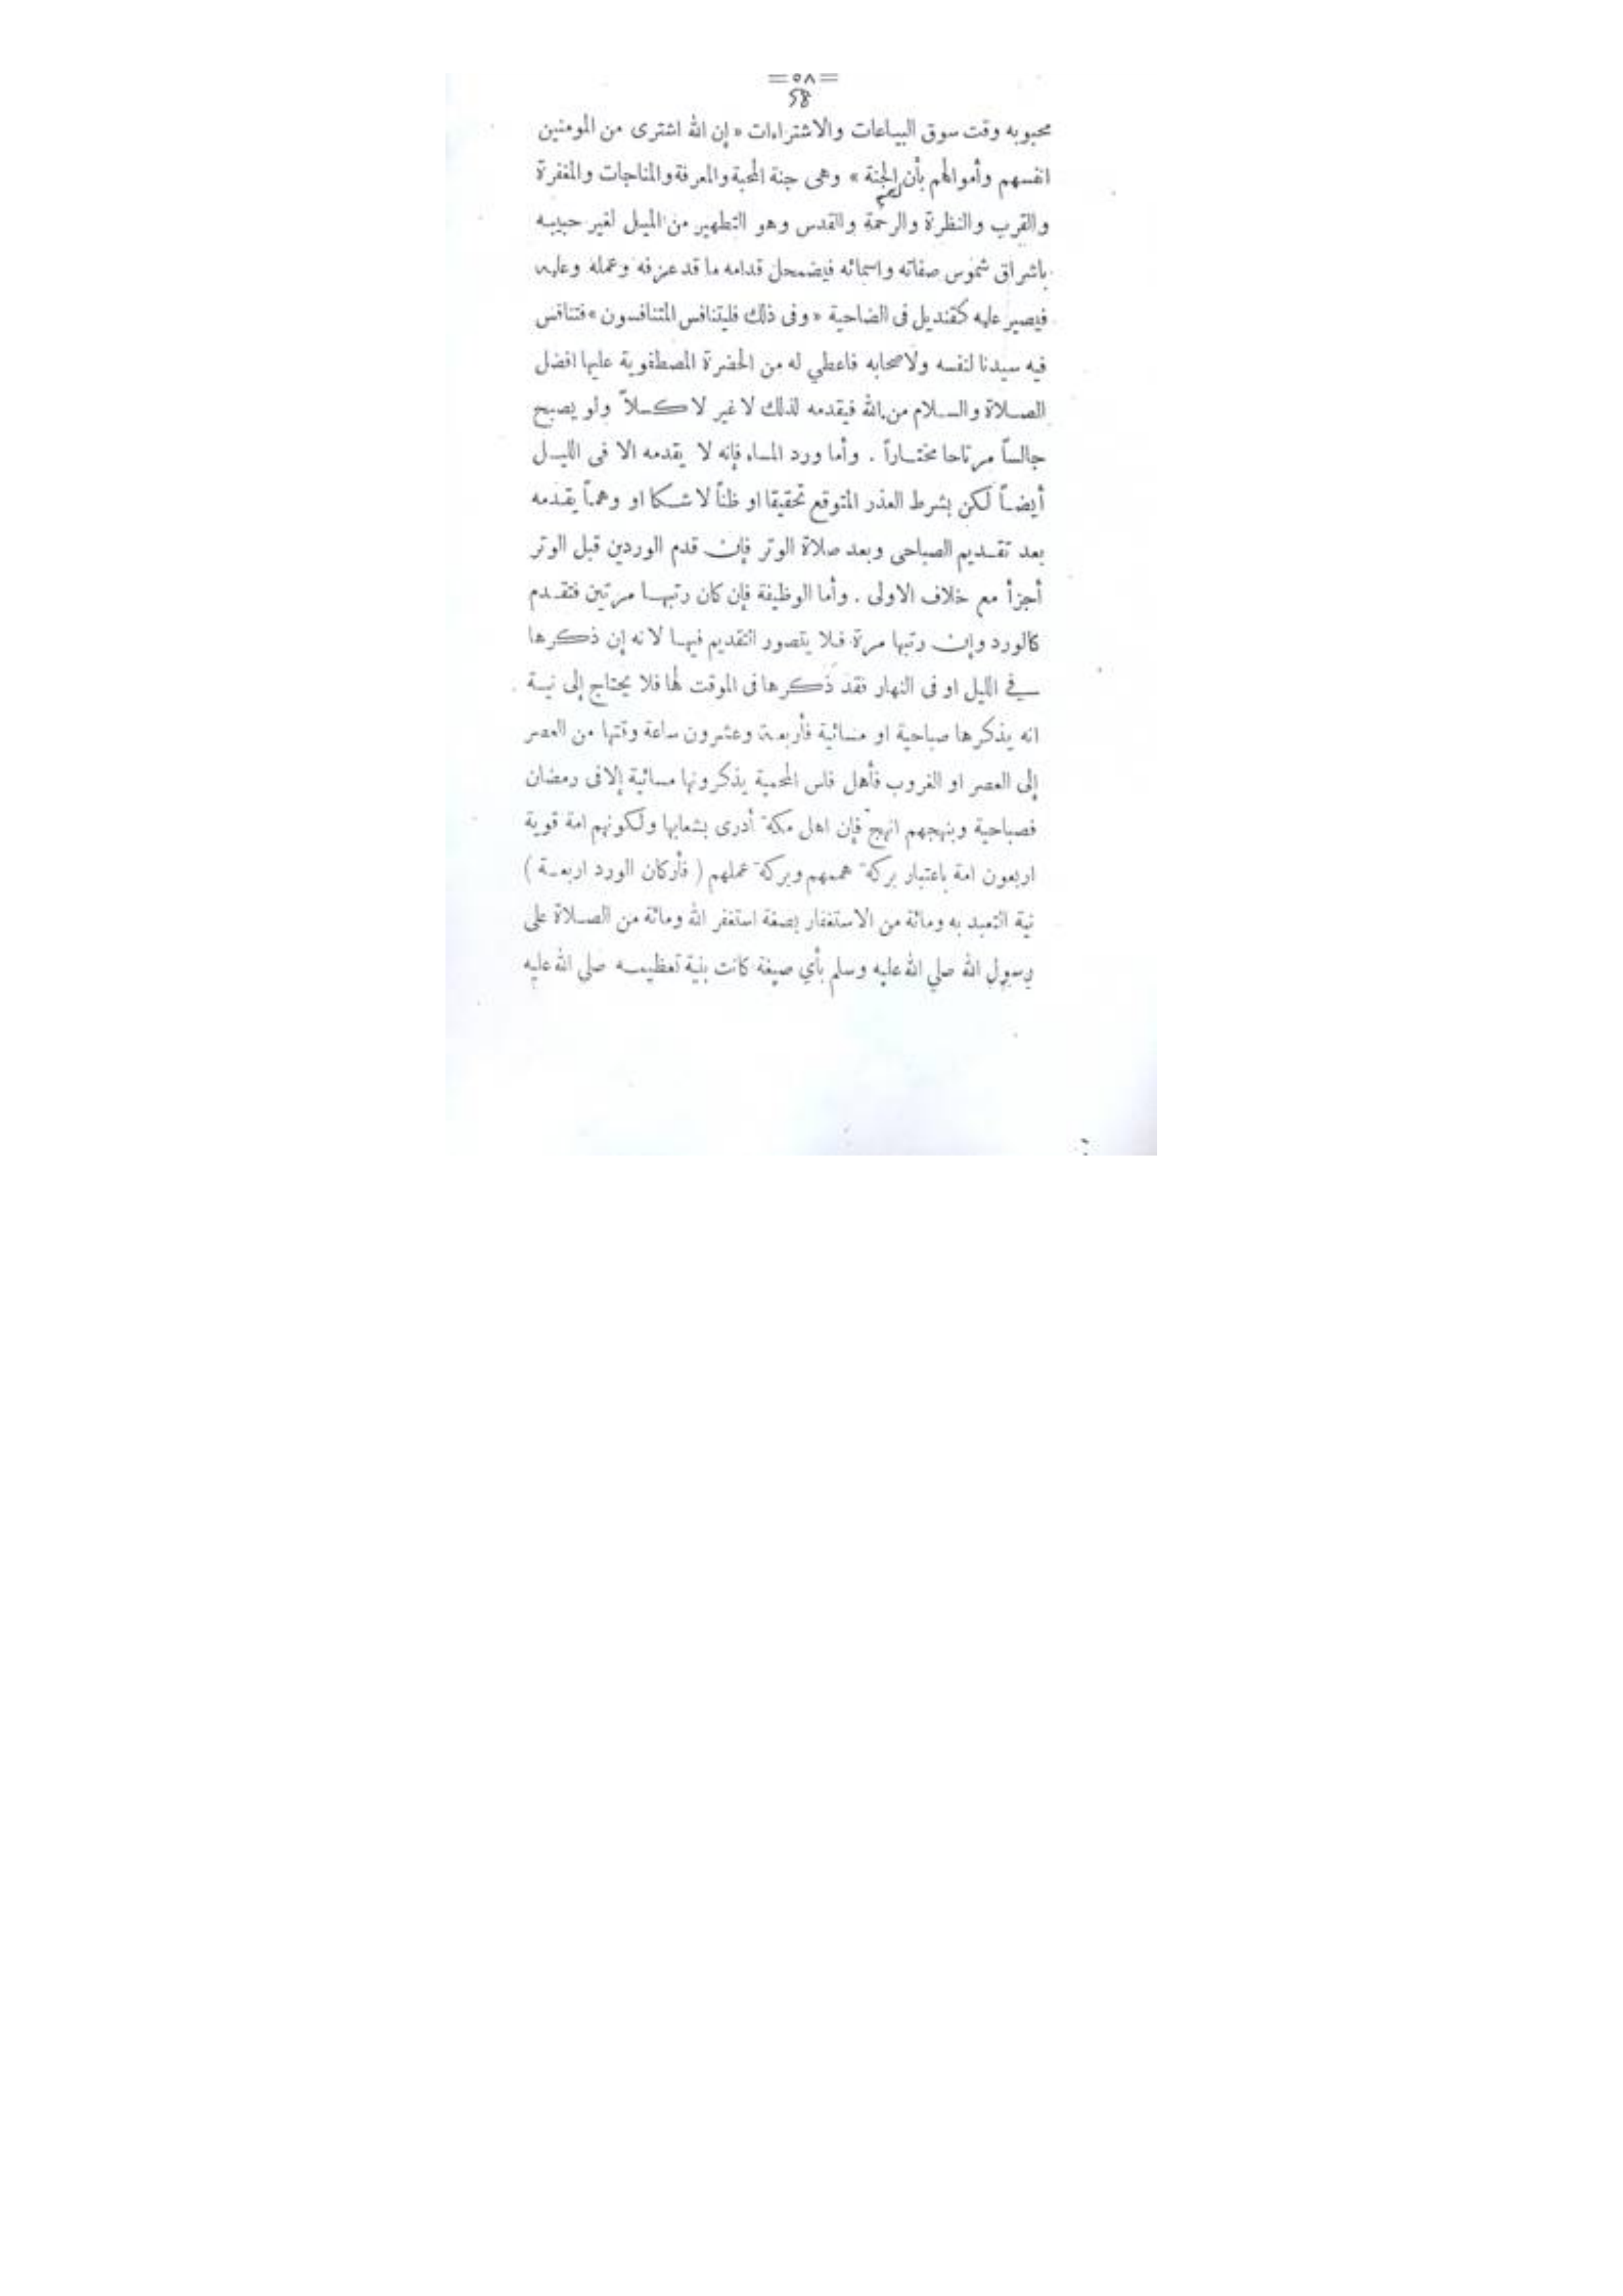 =٥٨=
58
محبوبه وقت سوق البياعات والاشتراءات « إن الله اشترى من المومنين
انفسهم وأموالهم بأن الجنة » وهى جنة المحبة والمعرفة والمناجات والمغفرة
لهم
والقرب والنظرة والرحمة والقدس وهو التطهير من الميل لغير حبيبه
باشراق شموس صفاته واسمائه فيضمحل قدامه ما قد عرفه وعمله وعليه
فيصير عليه كقنديل فى الضاحية « وفى ذلك فليتنافس المتنافسون » فتنافس
فيه سيدنا لنفسه ولاصحابه فاعطي له من الحضرة المصطفوية عليها افضل
الصلاة والسلام من الله فيقدمه لذلك لا غير لا كسلاً ولو يصبح
جالساً مرتاحا مختاراً . وأما ورد المساء فإنه لا يقدمه الا فى الليل
أيضاً لكن بشرط العذر المتوقع تحقيقا او ظناً لا شكا او وهماً يقدمه
بعد تقديم الصباحى وبعد صلاة الوتر فإن قدم الوردين قبل الوتر
أجزأ مع خلاف الاولى . وأما الوظيفة فإن كان رتبها مرتين فتقدم
كالورد وإن رتبها مرة فلا يتصور التقديم فيها لانه إن ذكرها
في الليل او فى النهار فقد ذكرها فى الموقت لها فلا يحتاج إلى نية
انه يذكرها صباحية او مسائية فأربعة وعشرون ساعة وقتها من العصر
إلى العصر او الغروب فأهل فاس المحمية يذكرونها مسائية إلا فى رمضان
فصباحية وبنهجهم انهج فإن اهل مكة أدرى بشعابها ولكونهم امة قوية
اربعون امة باعتبار بركة هممهم وبركة عملهم ( فأركان الورد اربعة )
نية التعبد به ومائة من الاستغفار بصفة استغفر الله ومائة من الصلاة على
رسول الله صلي الله عليه وسلم بأي صيغة كانت بنية تعظيمه صلى الله عليه